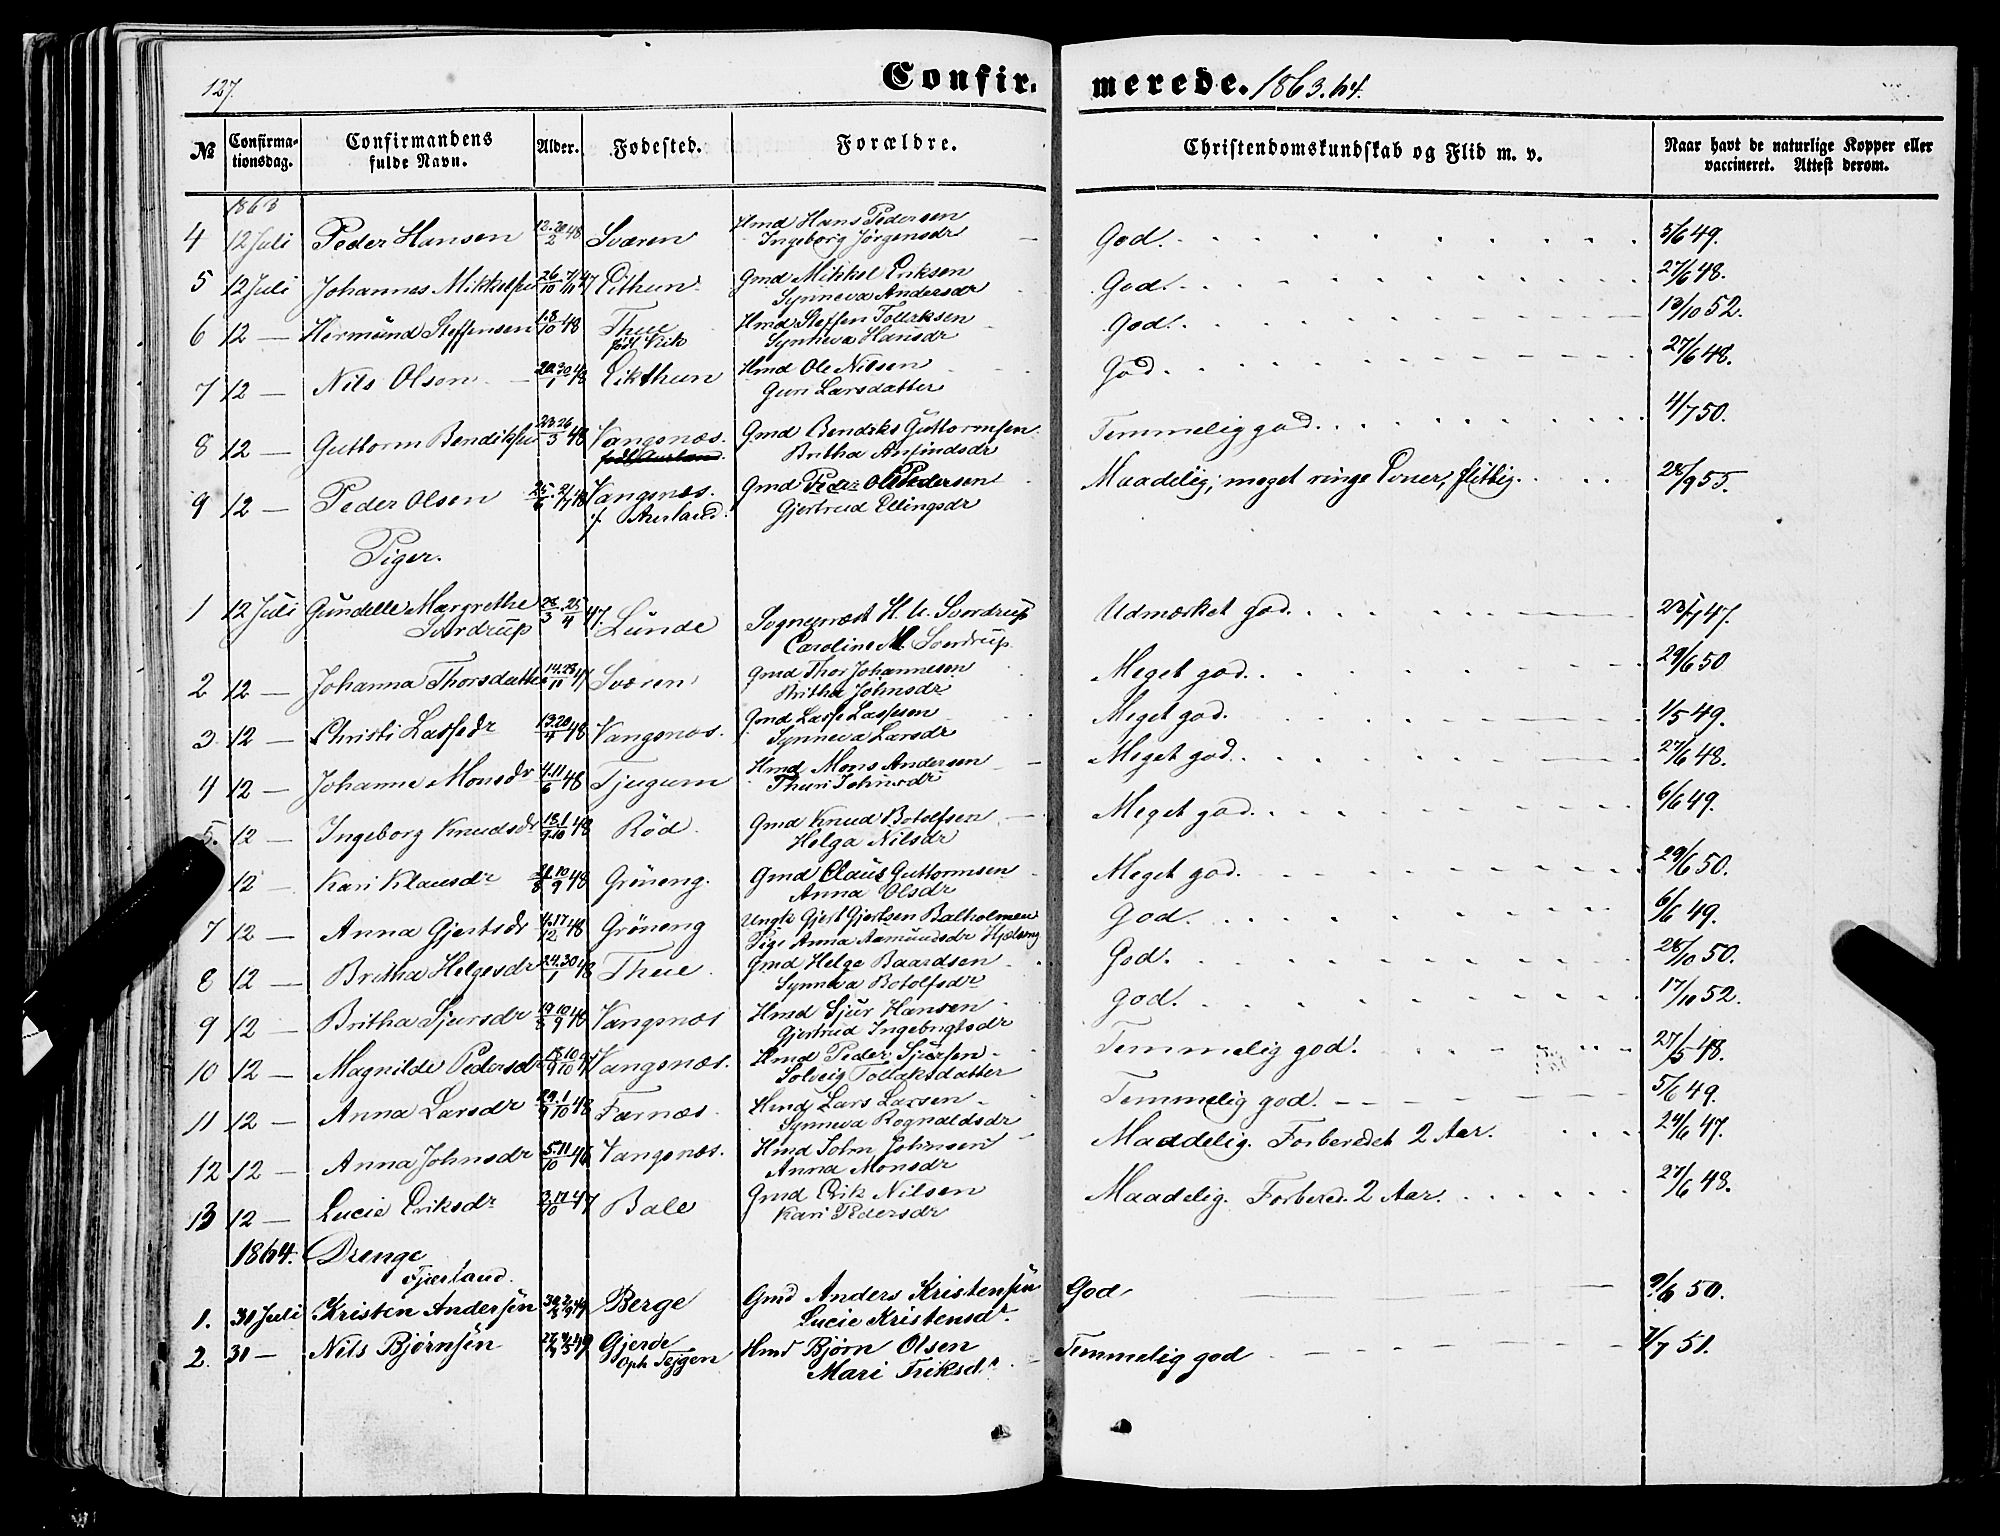 127.
Confir. merede. 1863.64.
№ Confirma-tionsdag. Confirmandens fulde Navn. Alder. Fødested. Forældre. Christendomskundskab og Flid m. v. Naar havt de naturlige Kopper eller vaccineret. Attest derom.
1863
4 12 Juli Peder Hansen 12.20/2 48 Sværen Hmd Hans Pedersen God. 5/6 49.
Ingeborg Jørgensdr
5 12 Juli Johannes Mikkelsen 26/10 7/11 47 Eithun Gmd Mikkel Eriksen God. 27/6 48.
Synneva Andersdr
6 12 — Hermund Steffensen 1.8/10 48 Thue Hmd Steffen Tolleksen God. 13/10 52.
født Viik Synneva Hansdr
7 12 — Nils Olsen 20.30/1 48 Eikthun Hmd Ole Nilsen God. 27/6 48.
Guri Larsdatter
8 12 — Guttorm Bendiksen 23.26/3 48 Vangsnæs. Gmd Bendiks Guttormsen Temmelig god. 4/7 50.
født Aurland. Britha Arfindsdr
9 12 — Peder Olsen 25/6 2/7 48 Vangsnæs. Gmd Ole Pedersen Maadelig; meget ringe Evner, flittig. 28/9 55.
f. Aurland. Gjertrud Ellingsdr
Piger.
1 12 Juli Gundelle Margrethe 28/3 25/4 47. Lunde Sogneprest H. U. Sverdrup Udmærket god. 23/7 47.
Sverdrup Caroline M. Sverdrup.
2 12 — Johanna Thorsdatter 14.28/11 47 Sværen Gmd Thor Johannesen Meget god. 29/6 50
Britha Johnsdr
3 12 — Christi Lassesdr 13.20/4 48 Vangsnæs. Gmd Lasse Lassesen Meget god. 1/5 49.
Synneva Larsdr
4 12 — Johanne Monsdr 4.11/6 48 Tjugum Hmd Mons Andersen Meget god. 27/6 48.
Thuri Johnsdr
5. 12 — Ingeborg Knudsdr 18.1/9.10 48 Rød. Gmd Knud Botolfsen Meget god. 6/6 49.
Helga Nilsdr
12 — Kari Klausdr 21.10/8 9 48 Grøneng. Gmd Claus Guttormsen Meget god. 29/6 50.
Anna Olsdr
7 12 — Anna Gjertsdr 4.17/12 48 Grøneng Ungk Gjert Gjertsen Balholmen God. 6/6 49.
Pige Anna Aamundsdr Hjelteng
8 12 — Britha Helgesdr 24.30/1 48 Thue. Gmd Helge Baardsen God. 28/10 50.
Synneva Botolfsdr
9 12 — Britha Sjursdr 19.10/8 9 48 Vangsnæs Hmd Sjur Hansen God. 17/10 52.
Gjertrud Ingebrigtsdr
10 12 — Magnilde Pedersdr 18.10/9 10 47 Vangsnæs. Hmd Peder Sjursen Temmelig god. 27/5 48.
Solveig Tollaksdatter
11 12 — Anna Larsdr 29.1/9 10 48 Farnæs. Hmd Lars Larsen Temmelig god. 5/6 49.
Synneva Rognaldsdr
12 12 — Anna Johnsdr 5.11/10 46 Vangsnæs. Hmd John Johnsen Maadelig. Forberedet 2 Aar. 24/6 47.
Anna Monsdr
13 12 — Lucie Eriksdr 3.17/10 47 Bale Gmd Erik Nilsen Maadelig. Forbered. 2 Aar. 27/6 48.
Kari Pedersdr
1864. Drenge
Fjærland.
1. 31 Juli Kristen Andersen Berge Gmd Anders Kristensen God 9/6 50.
Lucie Kristensdr.
2. 31 — Nils Bjørnsen Gjerde Hmd Bjørn Olsen Temmelig god 7/7 51.
Oph Tejgen Mari Eriksdr